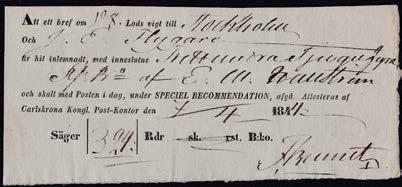 Att ett bref om 1 9/8. Lods vigt till Stockholm
Och J. E. Flygare
är hit inlemnadt, med inneslutne Trettundra Tjugufyra
Rd Bco af E. M. Wallström
och skall med Posten i dag, under SPECIEL RECOMMENDATION, afgå. Attesteras af
Carlskrona Kongl. Post-Kontor den 7/4 1844.
Säger 324. Rdr sk. rst. B:ko.